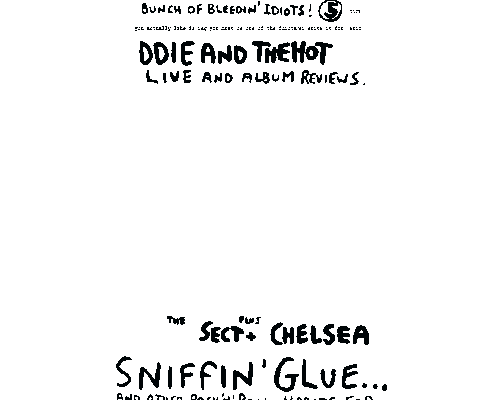 BUNCH OF BLEEDIN' IDIOTS! 5
DDIE AND THE HOT
LIVE AND ALBUM REVIEWS.
THE PLUS
SECT + CHELSEA
SNIFFIN' GLUE...
AND OTHER ROCK 'N' ROLL HABITS FOR